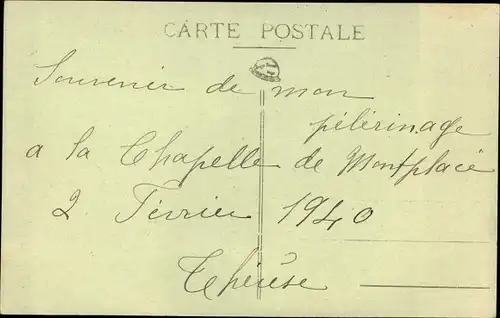 CARTE POSTALE
Souvenir de mon
pélérinage
a la Chapelle de Montplacé
2 Février 1940
Thérèse